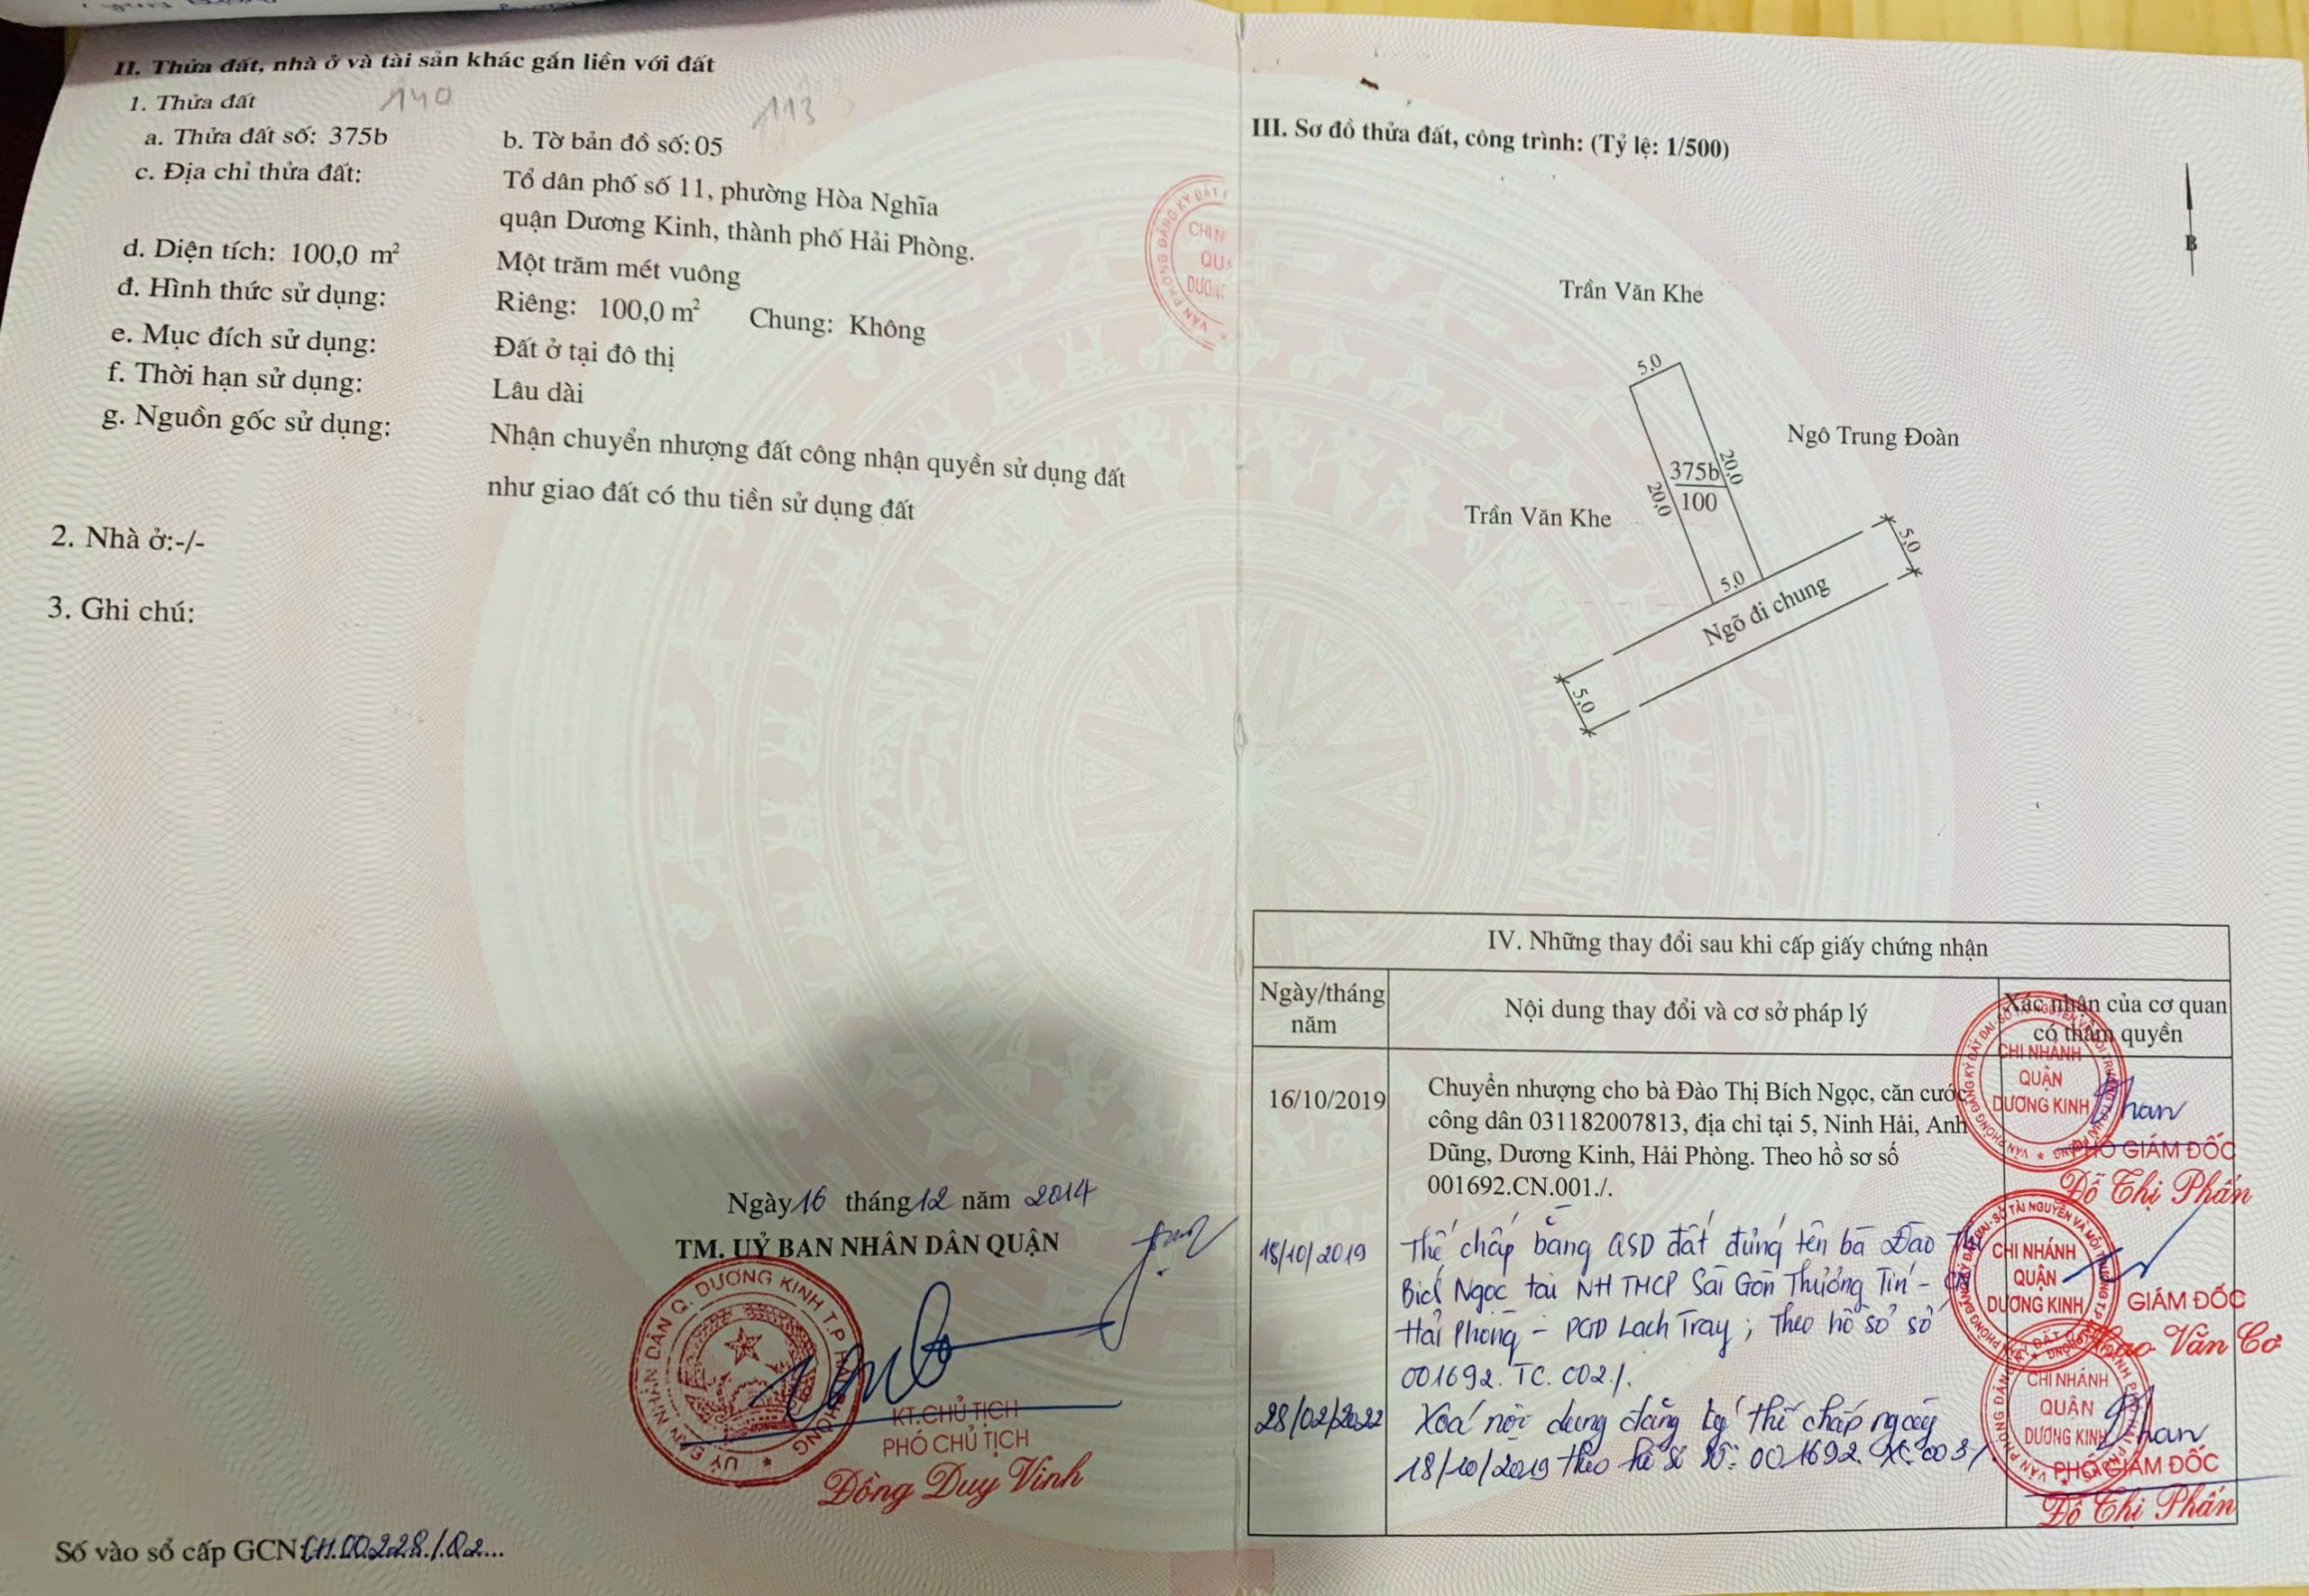 II. Thửa đất, nhà ở và tài sản khác gắn liền với đất
1. Thửa đất
140
113
a. Thửa đất số: 375b
b. Tờ bản đồ số: 05
c. Địa chỉ thửa đất:
Tổ dân phố số 11, phường Hòa Nghĩa
quận Dương Kinh, thành phố Hải Phòng.
d. Diện tích: 100,0 m²
Một trăm mét vuông
đ. Hình thức sử dụng:
Riêng: 100,0 m² Chung: Không
e. Mục đích sử dụng:
Đất ở tại đô thị
f. Thời hạn sử dụng:
Lâu dài
g. Nguồn gốc sử dụng:
Nhận chuyển nhượng đất công nhận quyền sử dụng đất
như giao đất có thu tiền sử dụng đất
2. Nhà ở:-/-
3. Ghi chú:
Ngày 16 tháng 12 năm 2014
TM. UỶ BAN NHÂN DÂN QUẬN
UỶ BAN NHÂN DÂN Q. DƯƠNG KINH T.P HẢI PHÒNG
KT.CHỦ TỊCH
PHÓ CHỦ TỊCH
Đồng Duy Vinh
Số vào sổ cấp GCN: CH.00228/.02...
III. Sơ đồ thửa đất, công trình: (Tỷ lệ: 1/500)
VĂN PHÒNG ĐĂNG KÝ ĐẤT
B
Trần Văn Khe
5,0
Ngô Trung Đoàn
20,0
375b
100
20,0
Trần Văn Khe
5,0
5,0
Ngõ đi chung
5,0
IV. Những thay đổi sau khi cấp giấy chứng nhận
Ngày/tháng
năm
Nội dung thay đổi và cơ sở pháp lý
Xác nhận của cơ quan
có thẩm quyền
16/10/2019
Chuyển nhượng cho bà Đào Thị Bích Ngọc, căn cước
công dân 031182007813, địa chỉ tại 5, Ninh Hải, Anh
Dũng, Dương Kinh, Hải Phòng. Theo hồ sơ số
001692.CN.001./.
CHI NHÁNH
QUẬN
DƯƠNG KINH
PHÓ GIÁM ĐỐC
Đỗ Thị Phấn
18/10/2019
Thế chấp bằng QSD đất đứng tên bà Đào Thị
Bích Ngọc tại NH TMCP Sài Gòn Thương Tín - CN
Hải Phòng - PGD Lạch Tray; Theo hồ sơ số
001692.TC.002./.
CHI NHÁNH
QUẬN
DƯƠNG KINH
GIÁM ĐỐC
Văn Cơ
28/02/2022
Xoá nội dung đăng ký thế chấp ngày
18/10/2019 theo hồ sơ số: 001692.XC.003/
CHI NHÁNH
QUẬN
DƯƠNG KINH
PHÓ GIÁM ĐỐC
Đỗ Thị Phấn